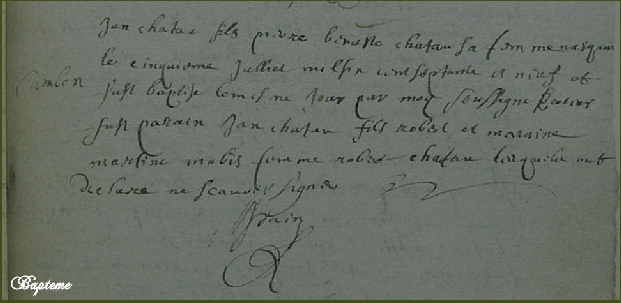 Jan chatau fils pierre chatau sa femme nasquit
le cinquieme Juliet mil six cent septante et neuf et
fust baptisé le mesme Jour par moy soussigné
fust parain Jan chatau fils robert et maraine
femme robert chatau lesquels ont
declaré ne scavoir signer
Bapteme